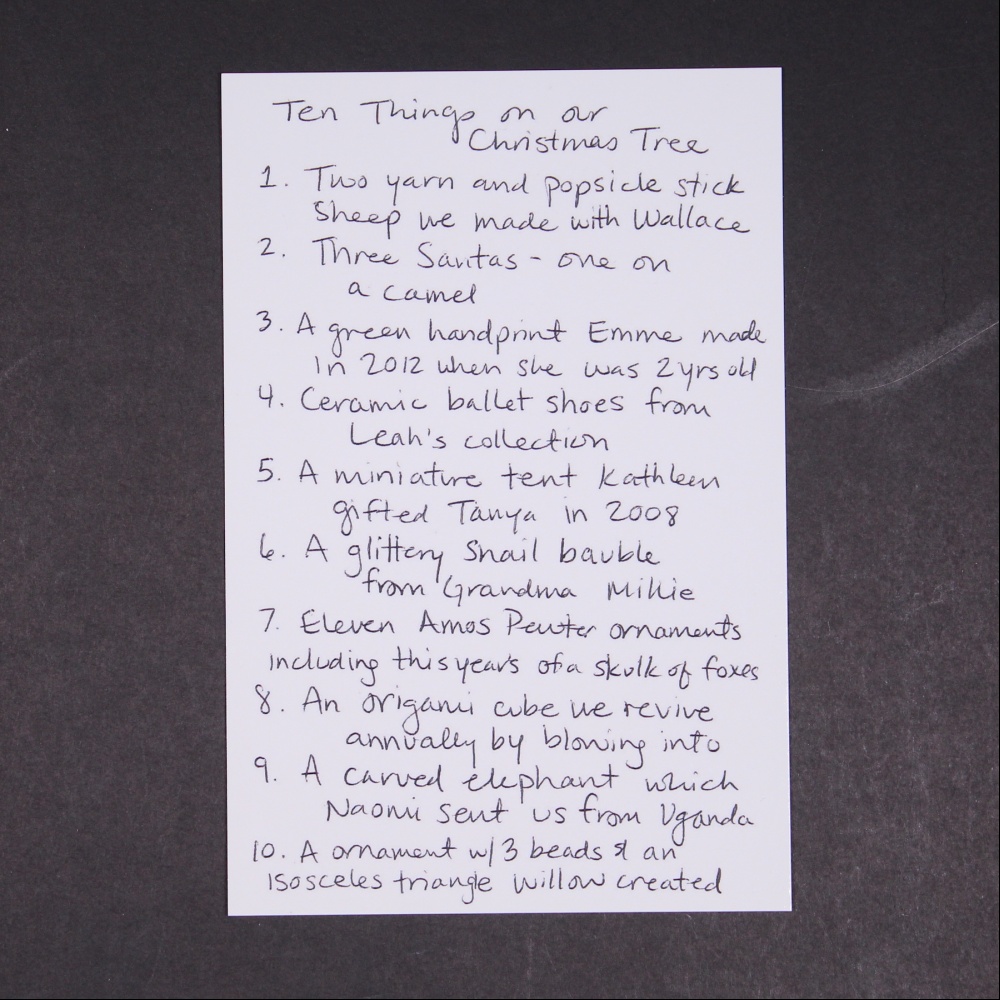 Ten Things on our
Christmas Tree
1. Two yarn and popsicle stick
Sheep we made with Wallace
2. Three Santas - one on
a camel
3. A green handprint Emme made
in 2012 when she was 2 yrs old
4. Ceramic ballet shoes from
Leah's collection
5. A miniature tent Kathleen
gifted Tanya in 2008
6. A glittery snail bauble
from Grandma Millie
7. Eleven Amos Pewter ornaments
including this year's of a skulk of foxes
8. An origami cube we revive
annually by blowing into
9. A carved elephant which
Naomi sent us from Uganda
10. A ornament w/ 3 beads & an
isosceles triangle Willow created